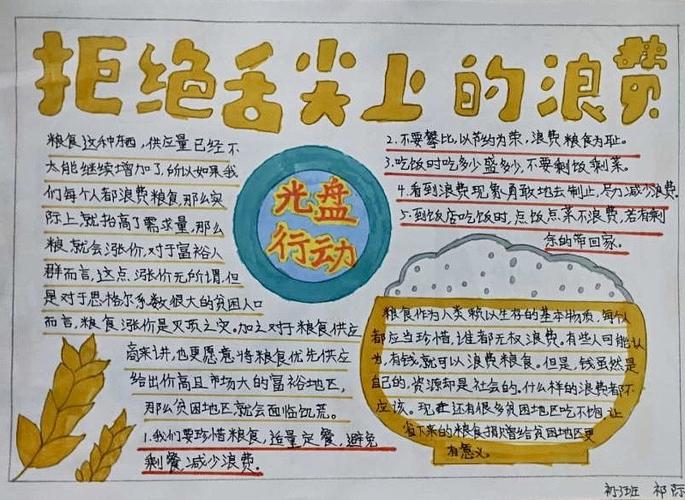 拒绝舌尖上的浪费
粮食这种东西，供应量已经不
太能继续增加了，所以如果我
们每个人都浪费粮食，那么实
际上就抬高了需求量，那么
粮就会涨价，对于富裕人
群而言，这点涨价无所谓，但
是对于恩格尔系数很大的贫困人口
而言，粮食涨价是灭顶之灾。加之对于粮食供应
商来讲，也更愿意将粮食优先供应
给出价高且市场大的富裕地区，
那么贫困地区就会面临饥荒。
1.我们要珍惜粮食，适量定餐，避免
剩餐，减少浪费。
光盘
行动
2.不要攀比，以节约为荣，浪费粮食为耻。
3.吃饭时吃多少盛多少，不要剩饭剩菜。
4.看到浪费现象勇敢地去制止，尽力减少浪费。
5.到饭店吃饭时，点饭点菜不浪费，若有剩
余的带回家。
粮食作为人类赖以生存的基本物质，每个人
都应当珍惜，谁都无权浪费。有些人可能认
为，有钱就可以浪费粮食。但是，钱虽然是
自己的，资源却是社会的。什么样的浪费都不
应该。现在还有很多贫困地区吃不饱，让
省下来的粮食捐赠给贫困地区更
有意义。
班 祁